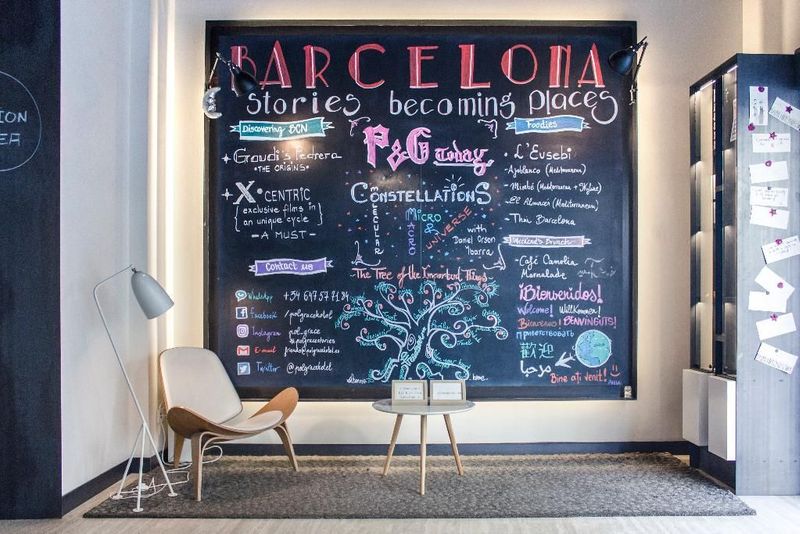 BARCELONA
Stories becoming places
Discovering BCN
Gaudi's Pedrera
• THE ORIGINS •
X• CENTRIC
exclusive films in
an unique cycle
- A MUST -
Contact us
WhatsApp +34 697 57 71 34
Facebook /polgracehotel
Instagram pol_grace
@polgracestories
E-mail
Twitter @polgracehotel
P&G Today
CONSTELLATIONS
MOLECULAR
MICRO
&
MACRO
UNIVERSE
with
Daniel Orson
Ybarra
- The Tree of the Important Things -
Foodies
- L'Eusebi
- Azoblanco (Mediterranean)
- El Almacén (Mediterranean)
- Thai Barcelona
Weekend's Brunch
- Café Camelia
- Marmalade
¡Bienvenidos!
Welcome! Willkommen!
BENVINGUTS!
приветствовать
歡迎
مرحبا
Bine ați venit!